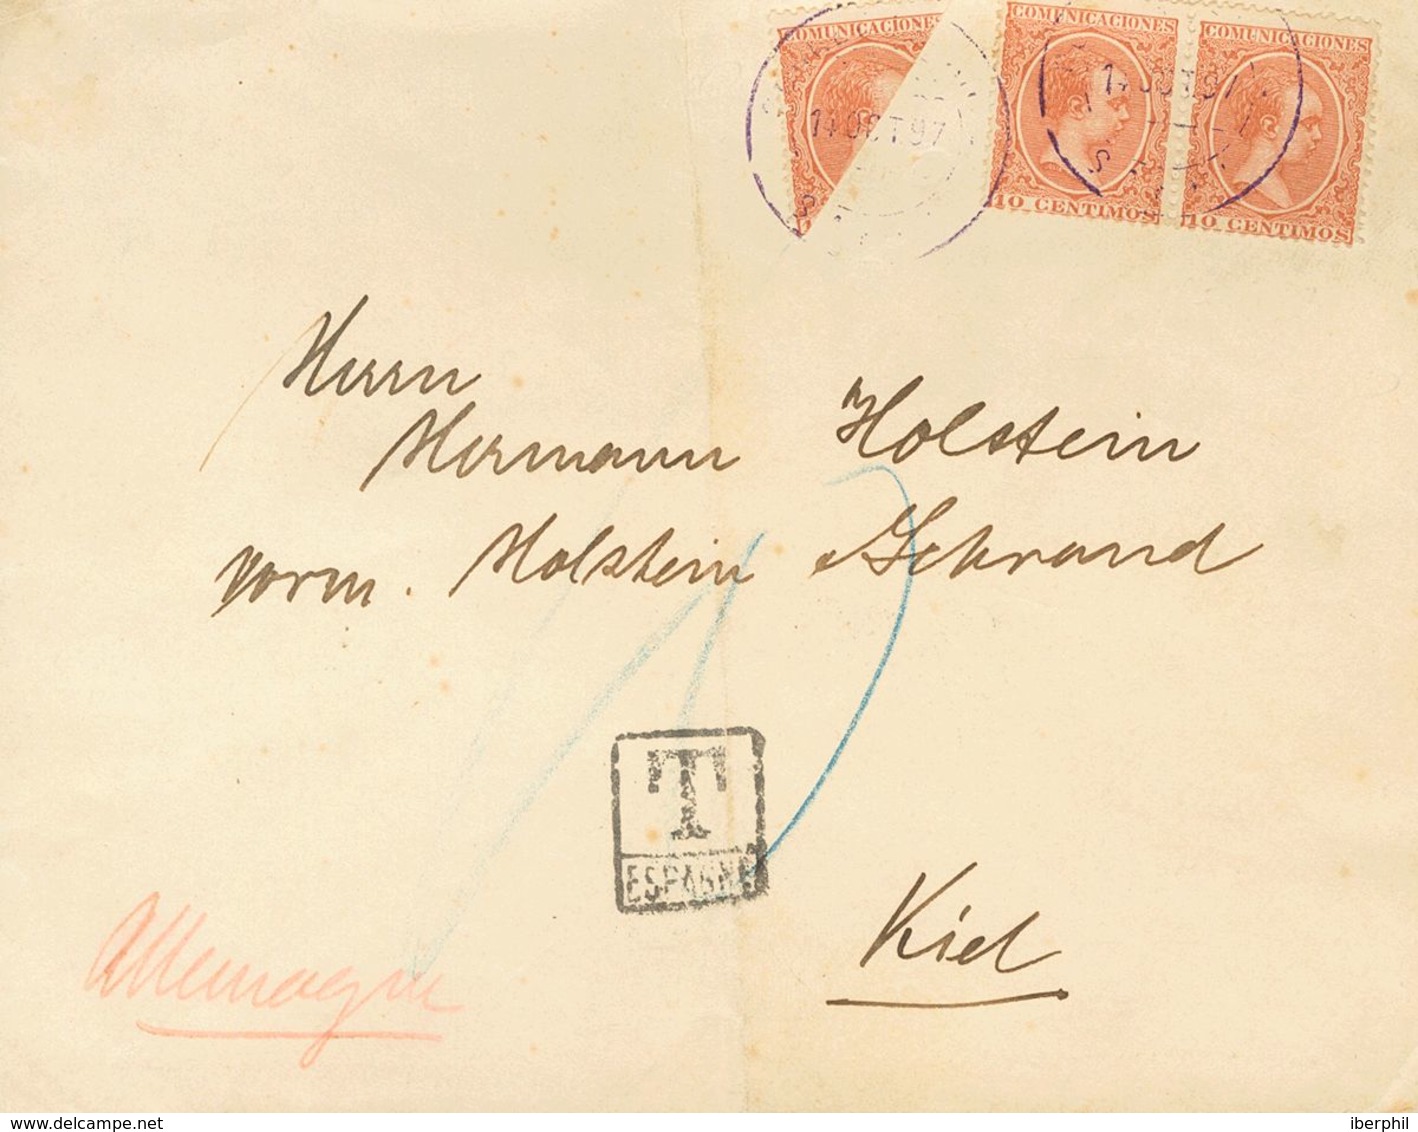 COMUNICACIONES COMUNICACIONES COMUNICACIONES
14 OCT 97 14 OCT 97
10 CENTIMOS 10 CENTIMOS
Herrn
Hermann Holstein
vorm. Holstein & Schrand
T
ESPAGNE
Kiel
Allemagne
delcampe.net
iberphil